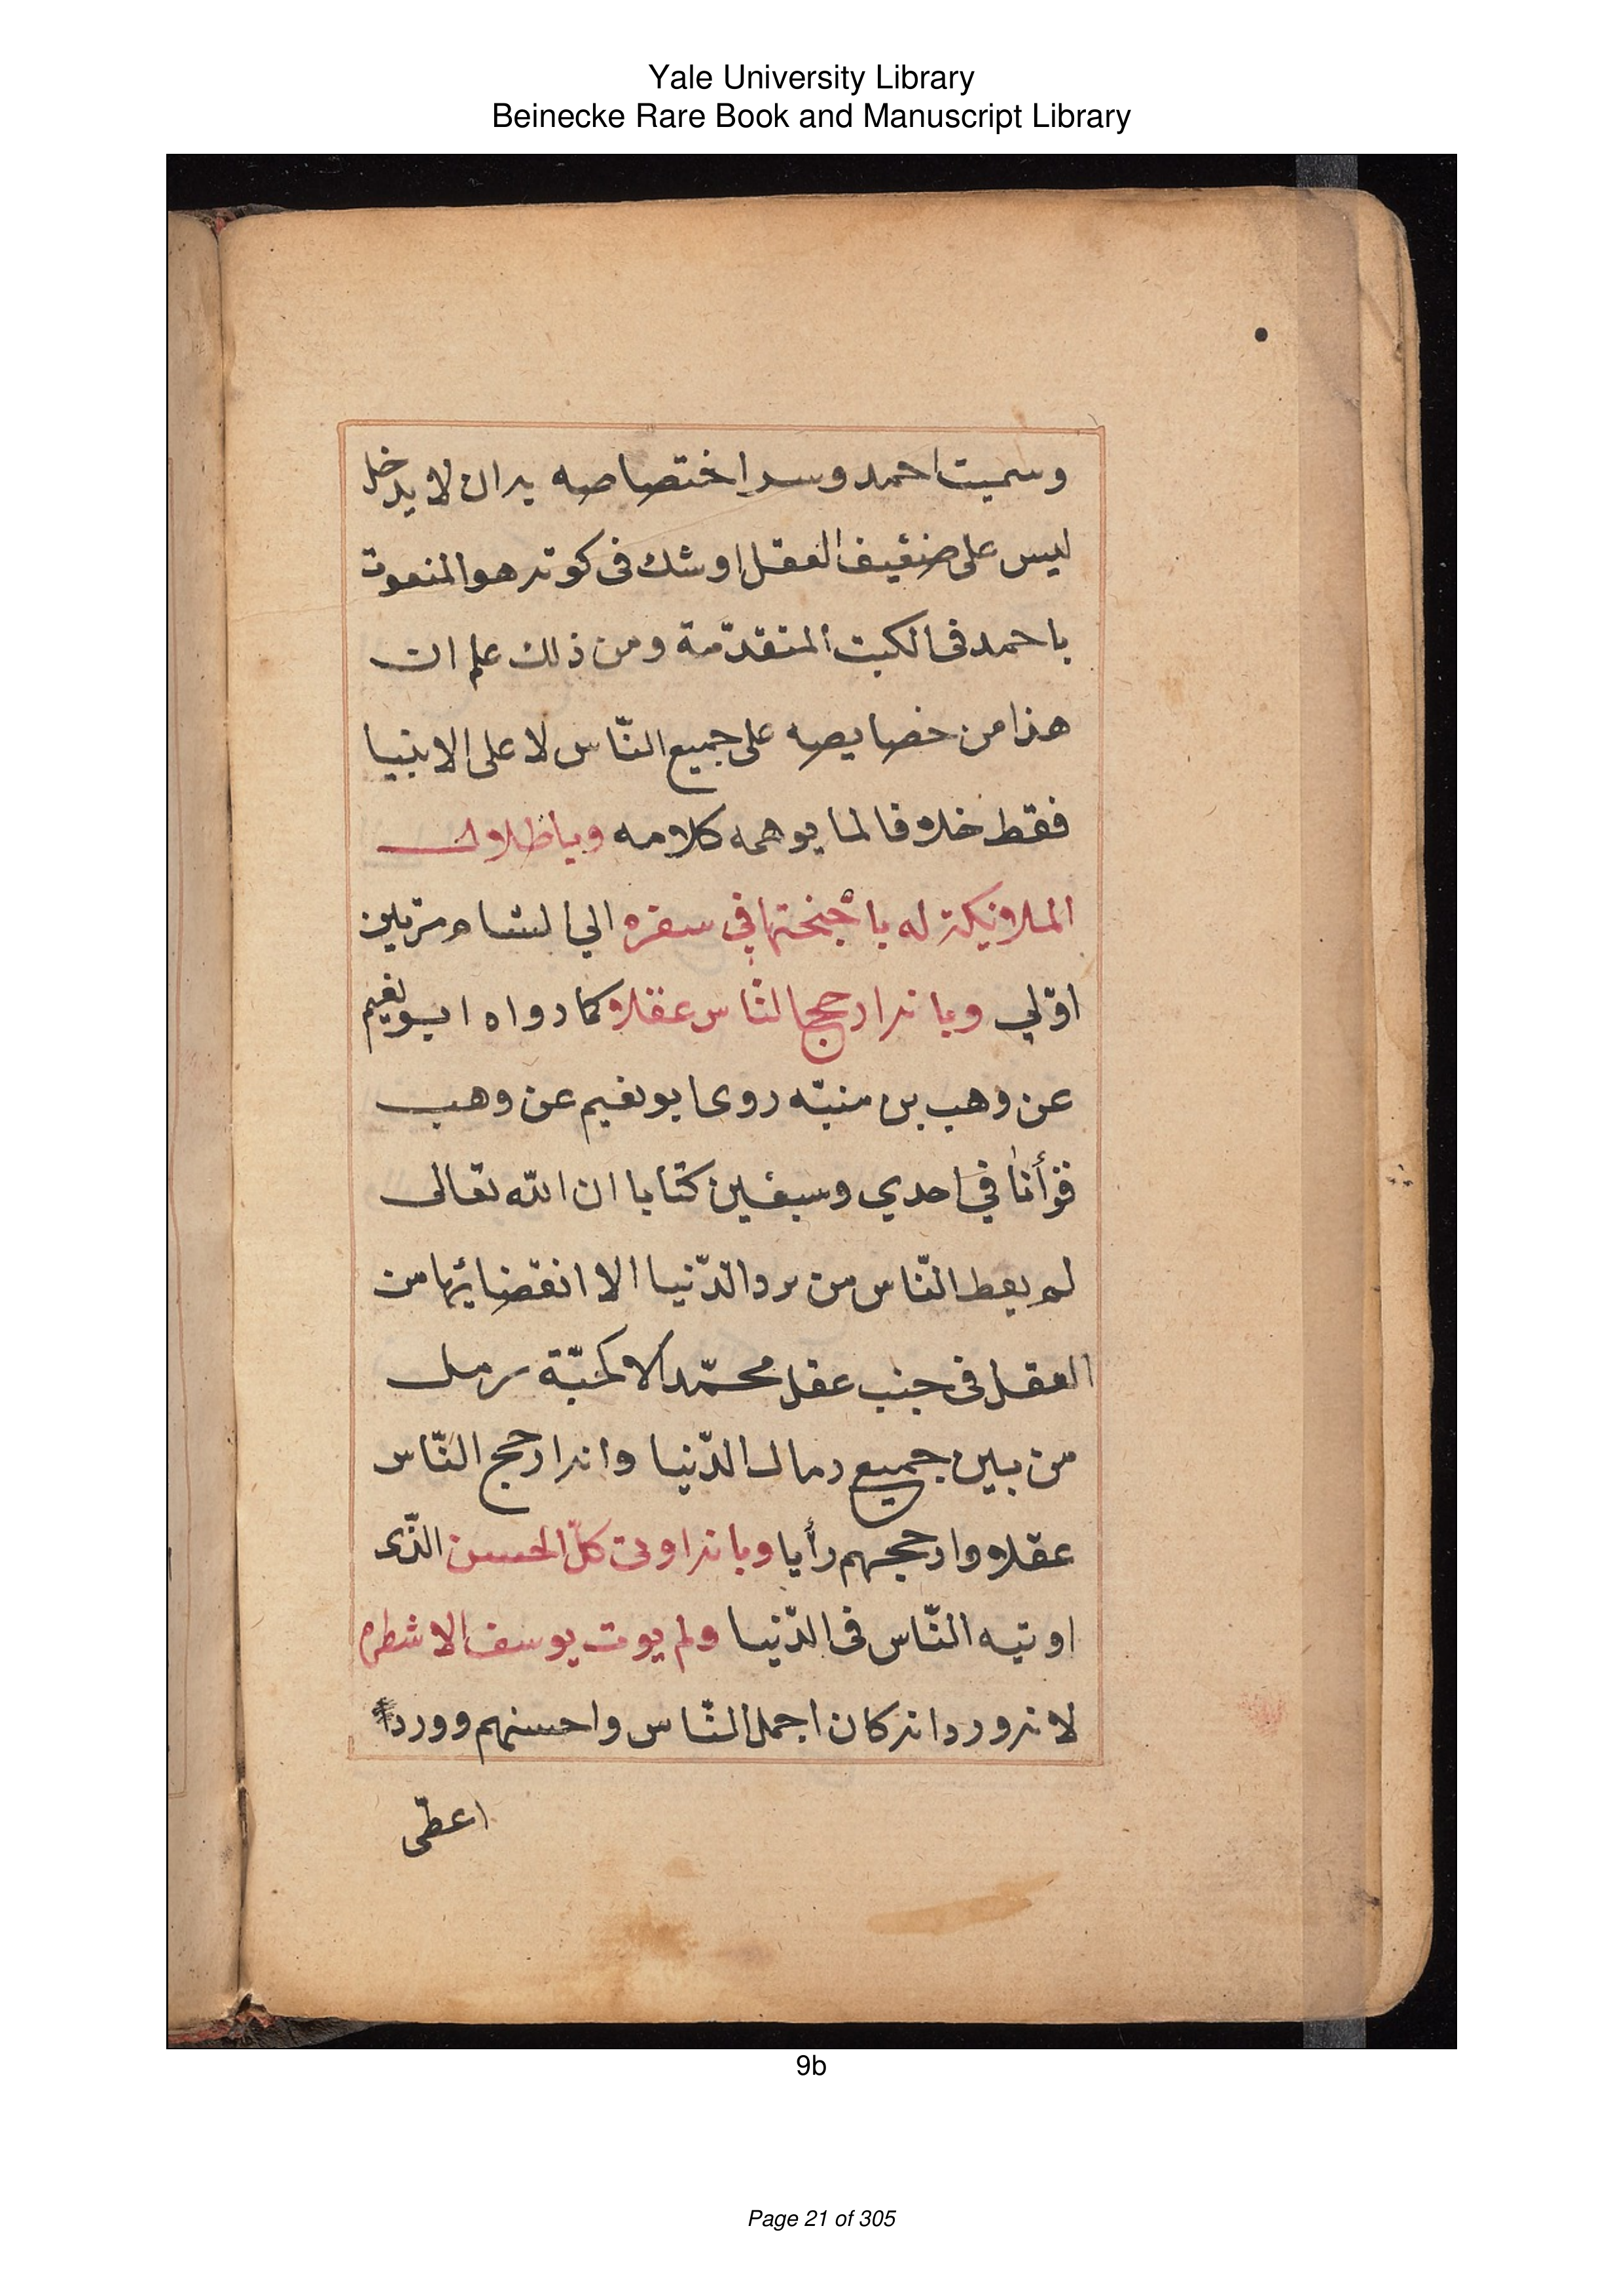 Yale University Library
Beinecke Rare Book and Manuscript Library
وسميت احمد وسر اختصاصه به ان لا يدخل
لبس على ضعيف العقل او شك فى كونه هو المنعوت
باحمد فى الكتب المتقدّمة ومن ذلك علم ان
هذا من خصايصه على جميع النّاس لا على الانبيا
فقط خلافا لما يوهمه كلامه وباظلال
الملائيكة له باجنحتها في سفره الي الشام مرّتين
اوّلي وبانه ارجح النّاس عقلا كما رواه ابو نعيم
عن وهب بن منبّه روى ابو نعيم عن وهب
قرأنا في احدي وسبعين كتابا ان الله تعالى
لم يعط النّاس من الدّنيا الا انقضائها من
العقل فى جنب عقل محمّد الا كحبّة رمل
من بين جميع رمال الدّنيا وانه ارجح النّاس
عقلا وارجحهم رأيا وبانه اوتى كلّ الحسن الذّى
اوتيه النّاس فى الدّنيا ولم يوت يوسف الا شطره
لانه ورد انه كان اجمل النّاس واحسنهم وورد
اعطى
9b
Page 21 of 305